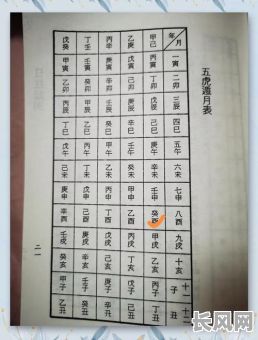 五虎遁月表
戊癸 丁壬 丙辛 乙庚 甲己 年 月
甲寅 壬寅 庚寅 戊寅 丙寅 一寅
乙卯 癸卯 辛卯 己卯 丁卯 二卯
丙辰 甲辰 壬辰 庚辰 戊辰 三辰
丁巳 乙巳 癸巳 辛巳 己巳 四巳
戊午 丙午 甲午 壬午 庚午 五午
己未 丁未 乙未 癸未 辛未 六未
庚申 戊申 丙申 甲申 壬申 七申
辛酉 己酉 丁酉 乙酉 癸酉 八酉
壬戌 庚戌 戊戌 丙戌 甲戌 九戌
癸亥 辛亥 己亥 丁亥 乙亥 十亥
甲子 壬子 庚子 戊子 丙子 十一子
乙丑 癸丑 辛丑 己丑 丁丑 十二丑
二一
长风网